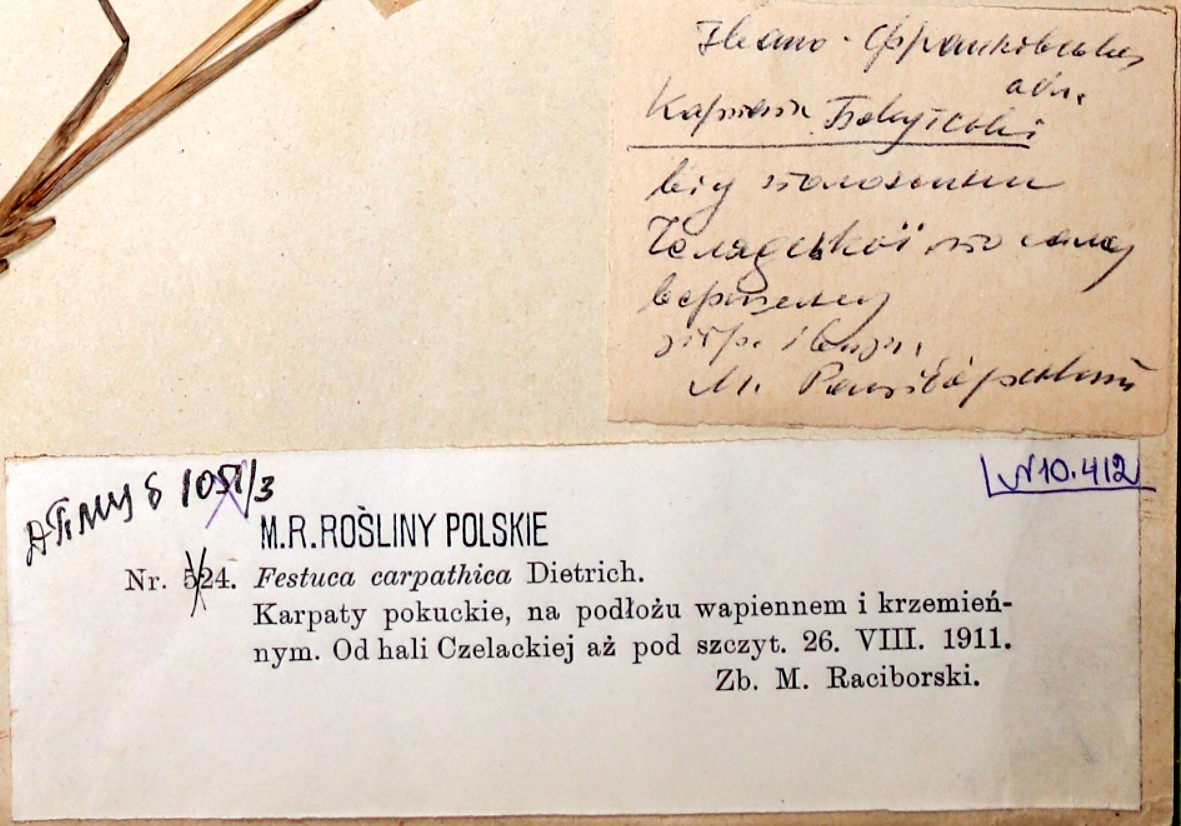 Івано-Франківська
обл.
Карпати Покутські
від полонини
Челядської по саму
вершину
зібр. і визн.
М. Раціборський
N 10.412
M.R. ROŚLINY POLSKIE
Nr. 524. Festuca carpathica Dietrich.
Karpaty pokuckie, na podłożu wapiennem i krzemień-
nym. Od hali Czelackiej aż pod szczyt. 26. VIII. 1911.
Zb. M. Raciborski.